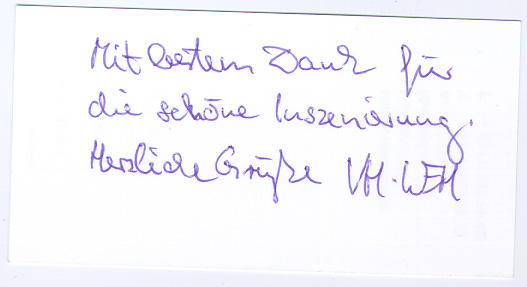 Mit bestem Dank für
die schöne Inszenierung.
Herzliche Grüße